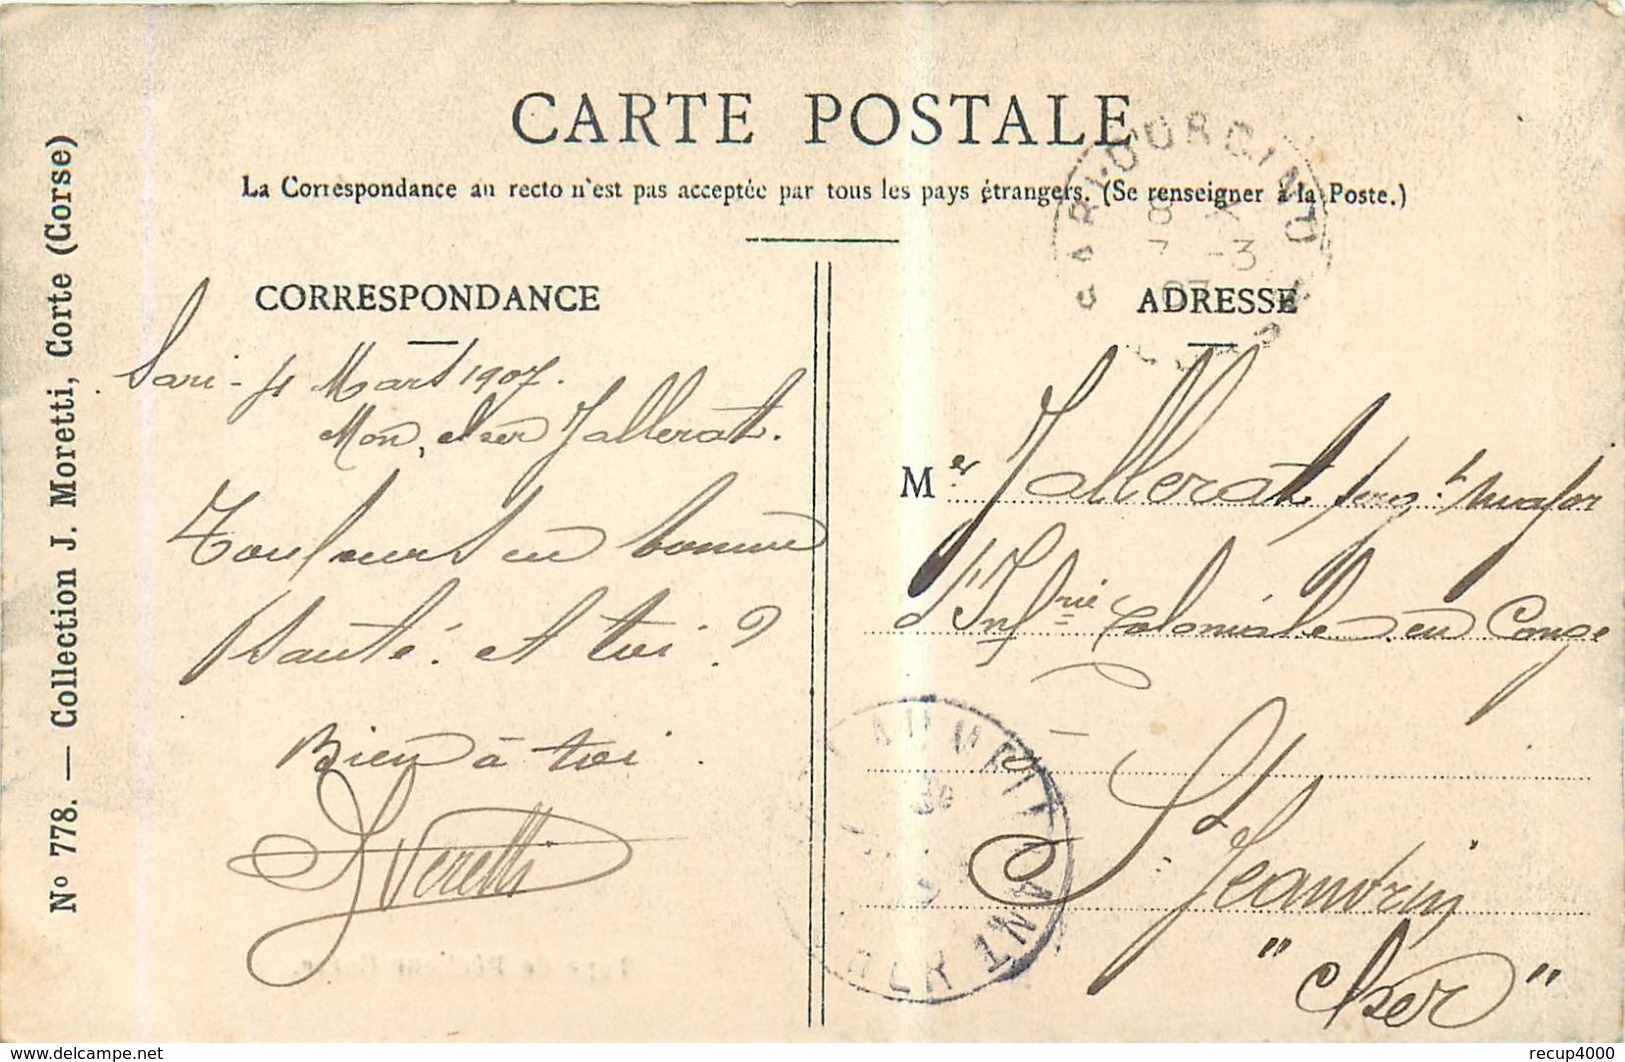 CARTE POSTALE
La Correspondance au recto n'est pas acceptée par tous les pays étrangers. (Se renseigner à la Poste.)
N° 778. — Collection J. Moretti, Corte (Corse)
CORRESPONDANCE
Sari - 4 Mars 1907.
Mon cher Jallerat.
Toujours en bonne
santé. et toi ?
Bien à toi.
ADRESSE
Mer Jallerat serg.t major
d'Infrie Coloniale en Congé
St Jeanvrin
"Cher"
www.delcampe.net
recup4000